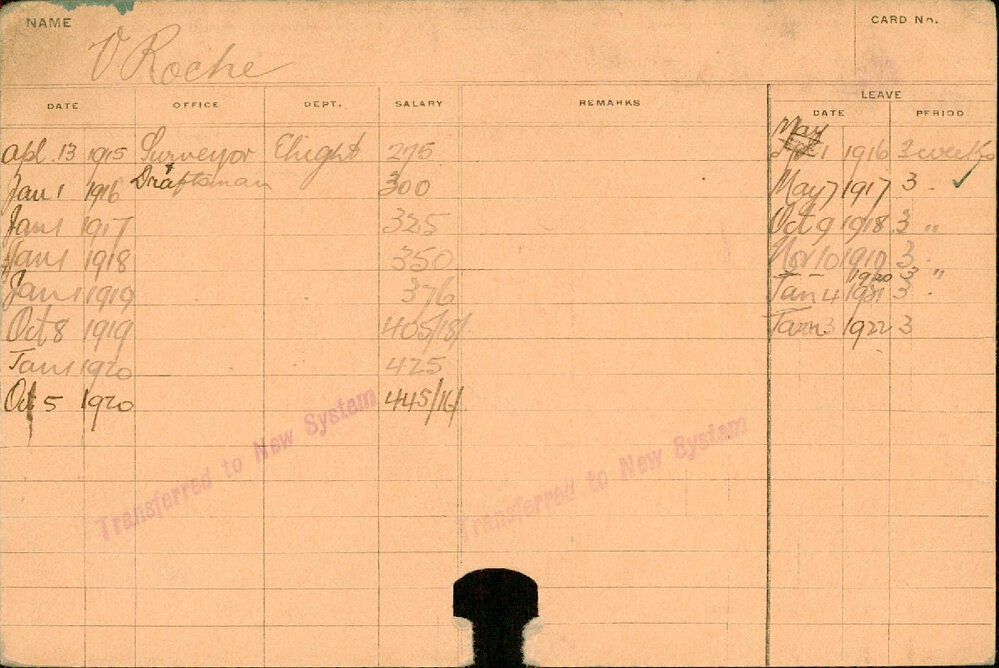 NAME
CARD No.
V Roche
DATE OFFICE DEPT. SALARY REMARKS LEAVE
DATE PERIOD
Apl. 13 1915 Surveyor 275 May 1 1916 3 weeks
Jan 1 1916 Draftsman 300 May 7 1917 3 " ✓
Jan 1 1917 325 Oct 9 1918 3 "
Jan 1 1918 350 Nov 10 1919 3 "
1920 3 "
Jan 1 1919 376 Jan 4 1921 3 "
Oct 8 1919 405/18/ Jan 3 1922 3
Jan 1 1920 425
Oct 5 1920 445/16/
Transferred to New System
Transferred to New System